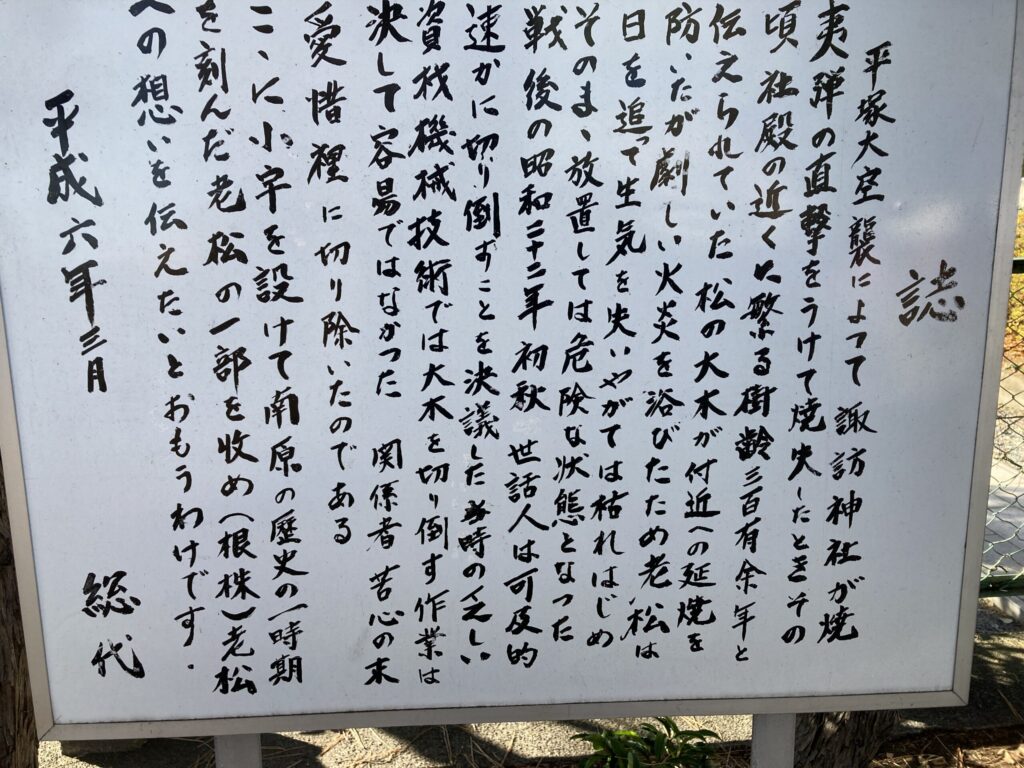 誌
平塚大空襲によって諏訪神社が焼
夷弾の直撃をうけて焼失したときその
頃社殿の近くに繁る樹齢三百有余年と
伝えられていた松の大木が付近への延焼を
防いたが劇しい火炎を浴びたため老松は
日を追って生気を失いやがては枯れはじめ
そのまゝ放置しては危険な状態となった
戦後の昭和二十二年初秋 世話人は可及的
速かに切り倒すことを決議した当時の乏しい
資材機械技術では大木を切り倒す作業は
決して容易ではなかった 関係者苦心の末
愛惜裡に切り除いたのである
こゝに小宇を設けて南原の歴史の一時期
を刻んだ老松の一部を收め(根株)老松
への想いを伝えたいとおもうわけです.
平成六年三月 総代